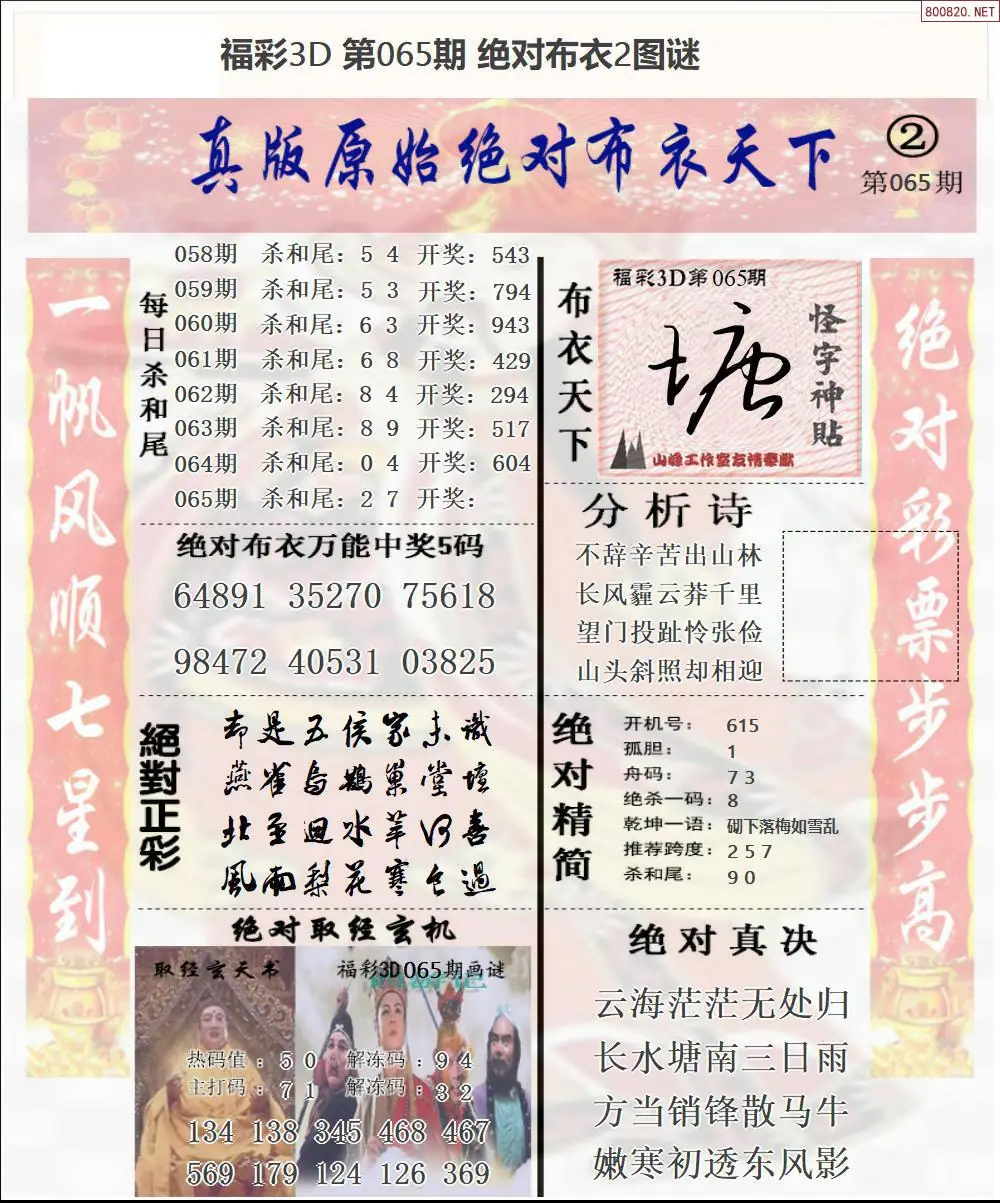 800820.NET
福彩3D 第065期 绝对布衣2图谜
真版原始绝对布衣天下
②
第065期
一帆风顺七星到
每日杀和尾
058期 杀和尾：5 4 开奖：543
059期 杀和尾：5 3 开奖：794
060期 杀和尾：6 3 开奖：943
061期 杀和尾：6 8 开奖：429
062期 杀和尾：8 4 开奖：294
063期 杀和尾：8 9 开奖：517
064期 杀和尾：0 4 开奖：604
065期 杀和尾：2 7 开奖：
绝对布衣万能中奖5码
64891 35270 75618
98472 40531 03825
絕對正彩
却是五侯家未識
燕雀烏鵲巢堂壇
北至迴水萍何喜
風雨梨花寒食過
绝对取经玄机
取经玄天书
福彩3D065期画谜
热码值：5 0 解冻码：9 4
主打码：7 1 解冻码：3 2
134 138 345 468 467
569 179 124 126 369
布衣天下
福彩3D第065期
塘
怪字神貼
山峰工作室友情奉献
分析诗
不辞辛苦出山林
长风霾云莽千里
望门投趾怜张俭
山头斜照却相迎
绝对精简
开机号：615
孤胆：1
舟码：7 3
绝杀一码：8
乾坤一语：砌下落梅如雪乱
推荐跨度：2 5 7
杀和尾：9 0
绝对真决
云海茫茫无处归
长水塘南三日雨
方当销锋散马牛
嫩寒初透东风影
绝对彩票步步高